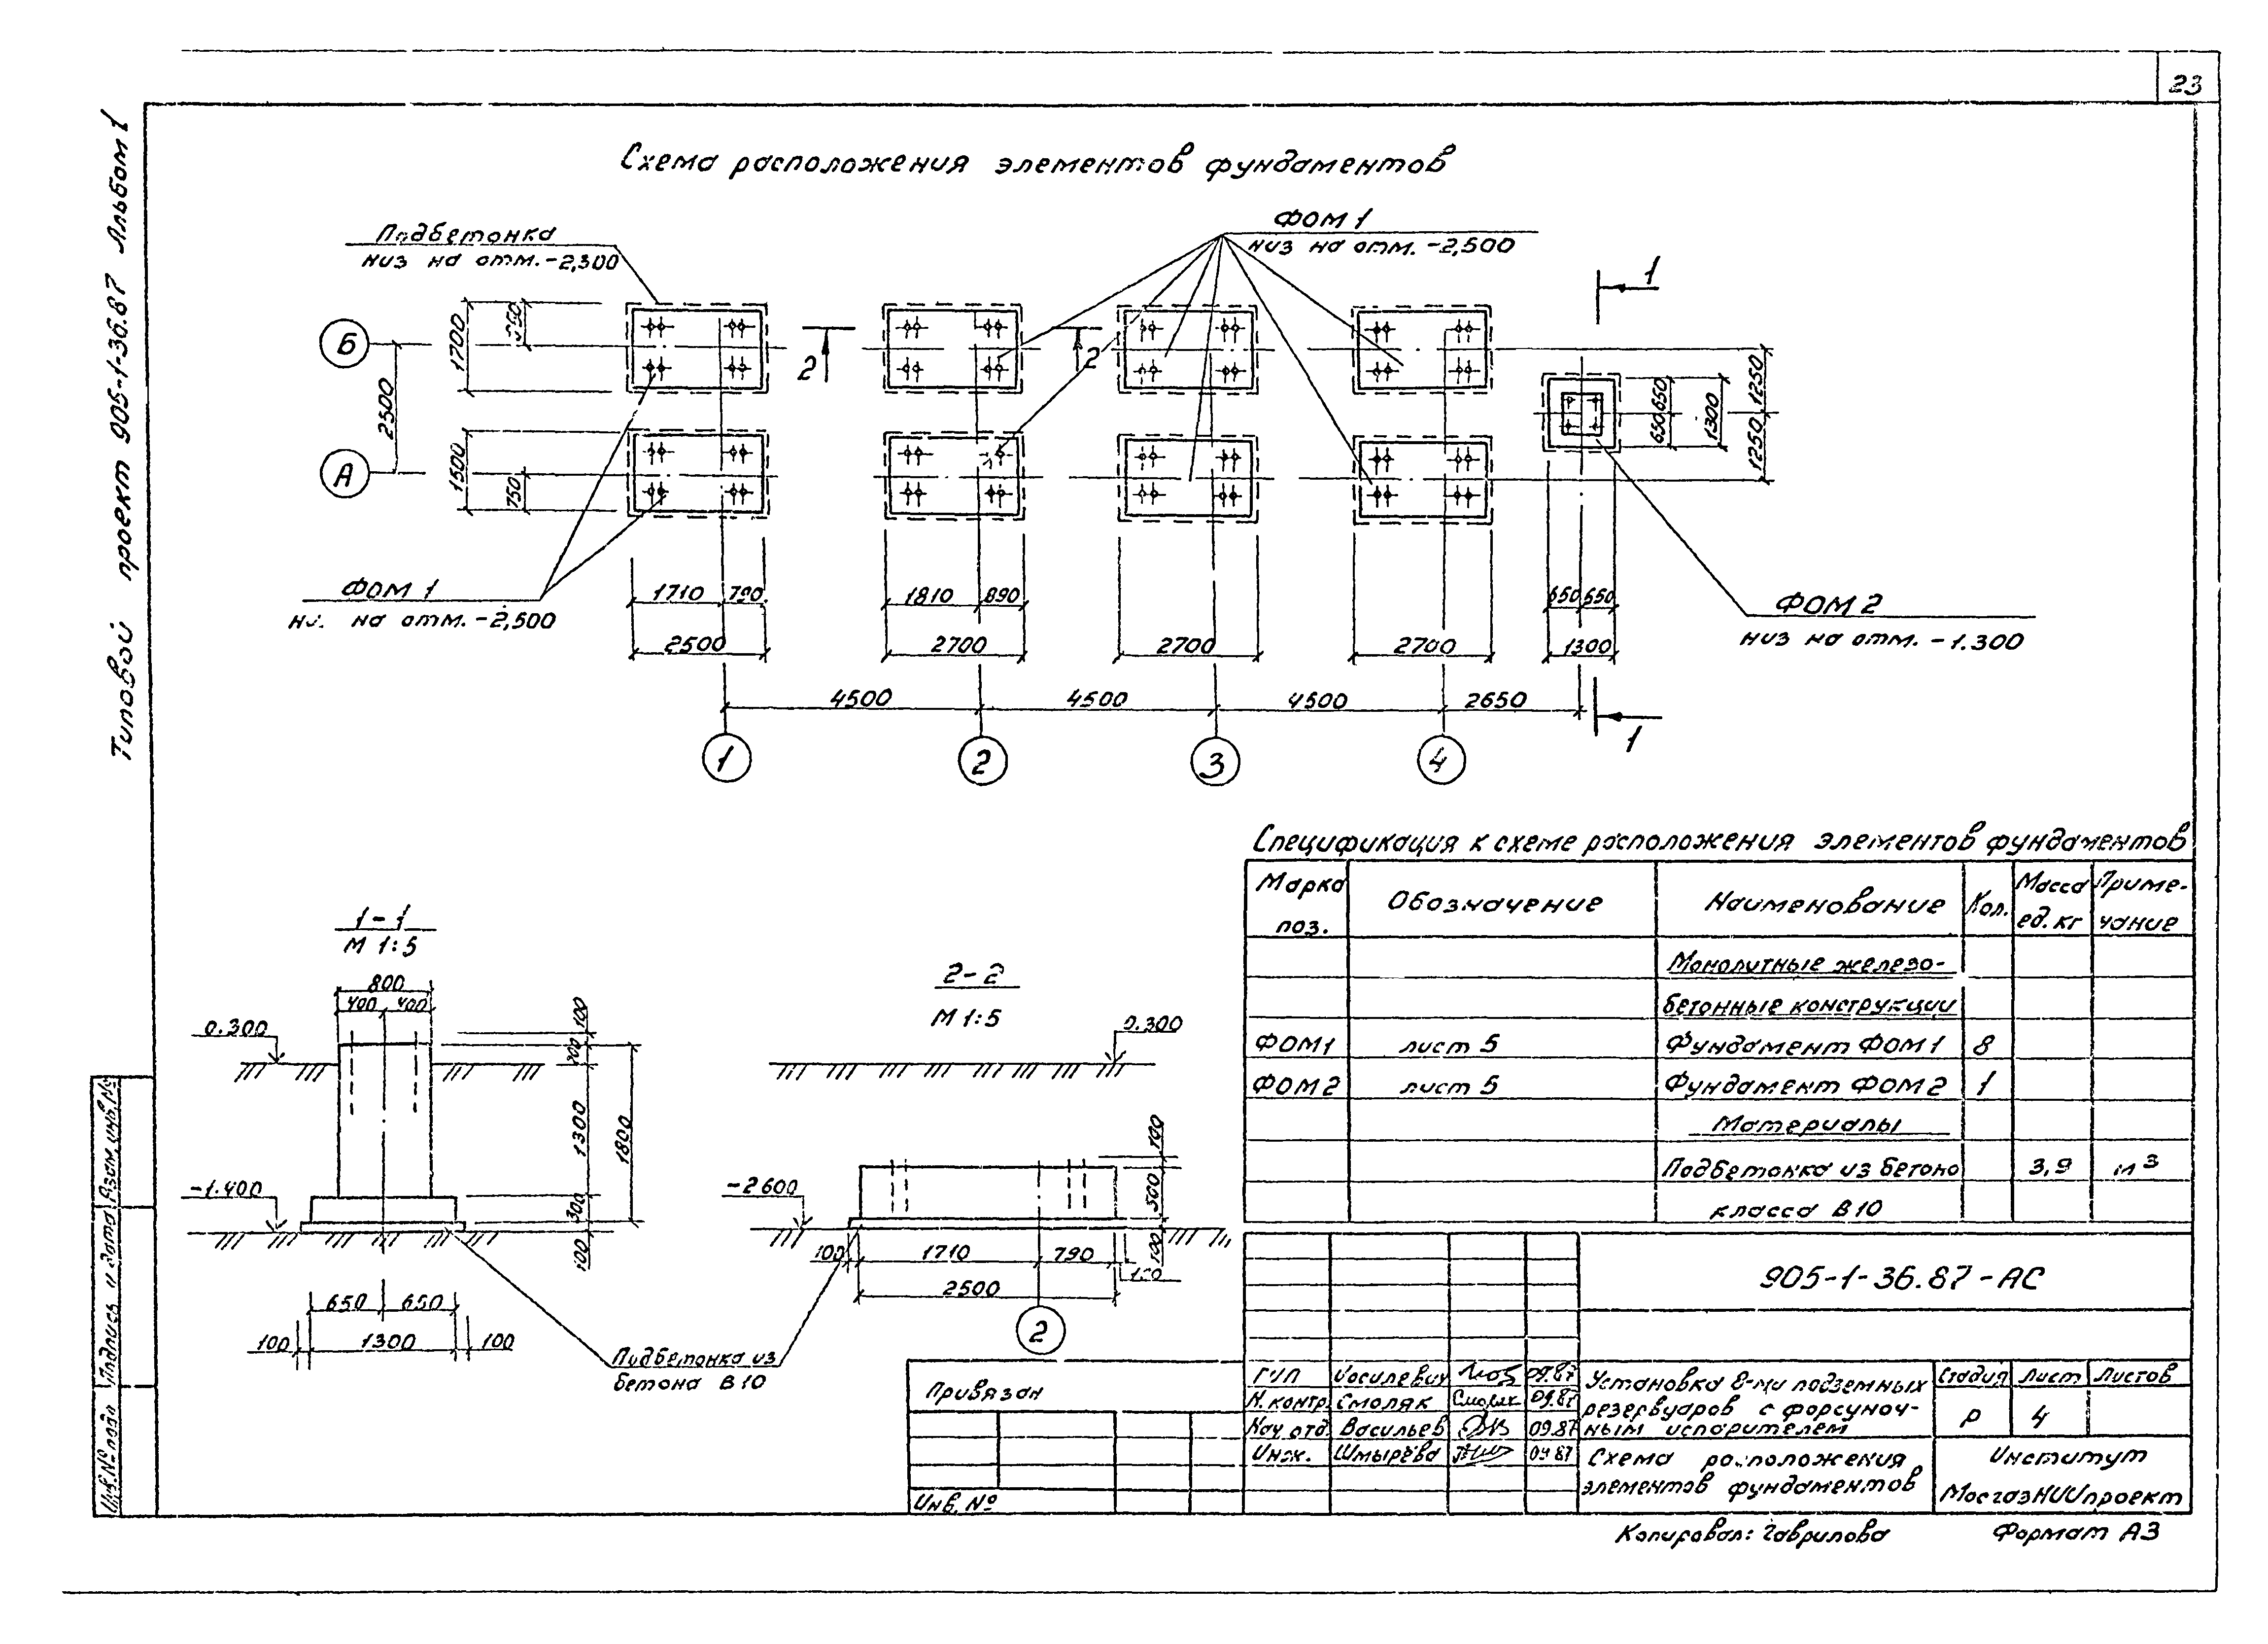 23
Типовой проект 905-1-36.87 Альбом 1
Схема расположения элементов фундаментов
Подбетонка
низ на отм.-2,300
ФОМ 1
низ на отм. -2,500
1
Б
А
1700
2500
1500
750
2
2
650 650
1300
1250 1250
ФОМ 1
на отм. -2,500
1710
790
2500
1810
890
2700
2700
2700
650 650
1300
ФОМ 2
низ на отм. -1.300
4500
4500
4500
2650
1
1
2
3
4
1-1
М 1:5
800
400 400
0.300
-1.400
100
200
1300
300
100
1800
650
650
100
1300
100
2-2
М 1:5
0.300
-2600
100
500
100
100
1710
790
2500
2
Подбетонка из
бетона В 10
Спецификация к схеме расположения элементов фундаментов
Марка поз.
Обозначение
Наименование
Кол.
Масса ед. кг
Приме-чание
Монолитные железо-
бетонные конструкции
ФОМ1 лист 5 Фундамент ФОМ 1 8
ФОМ2 лист 5 Фундамент ФОМ 2 1
Материалы
Подбетонка из бетона 3,9 м3
класса В 10
905-1-36.87-АС
Привязан
Инв. №
ГИП 09.87
Н. контр. Смоляк 09.87
Нач. отд. Васильев 09.87
Инж. Шмырёва 09 87
Установка 8-ми подземных
резервуаров с форсуноч-
ным испарителем
Стадия Лист Листов
Р 4
Схема расположения
элементов фундаментов
Институт
МосгазНИИпроект
Инв. № подл Подпись и дата Взам. инв. №
Копировал: Гаврилова
Формат А3